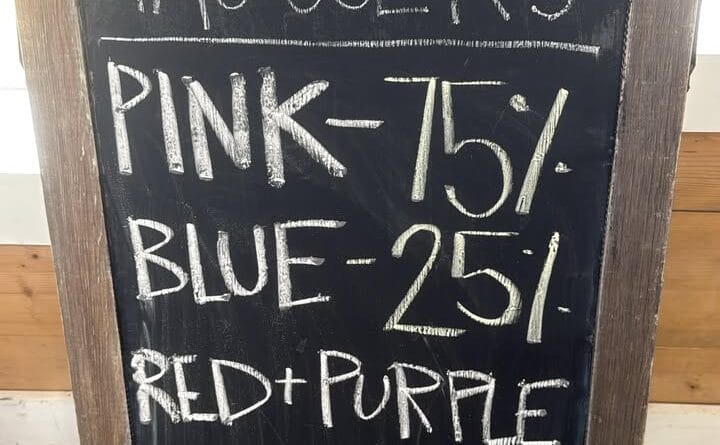 PINK - 75%
BLUE - 25%
RED + PURPLE